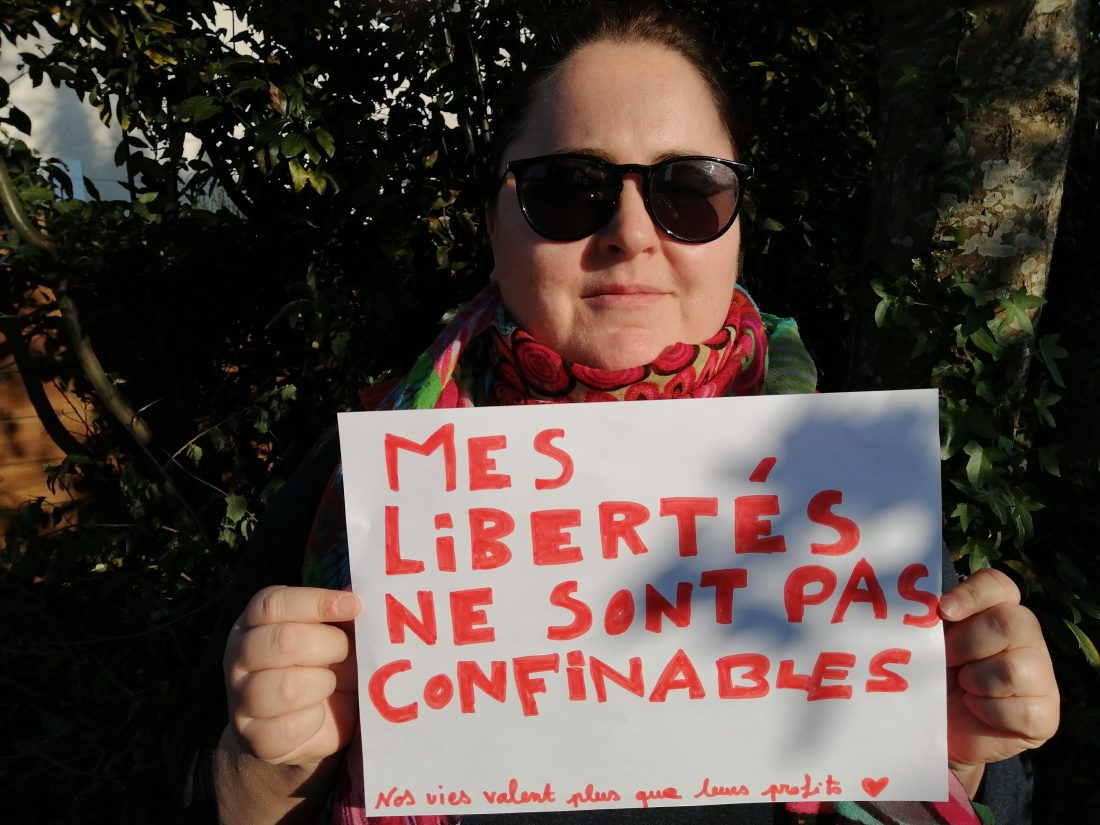 MES
LiBERTÉS
NE SONT PAS
CONFiNABLES
Nos vies valent plus que leurs profits ♥